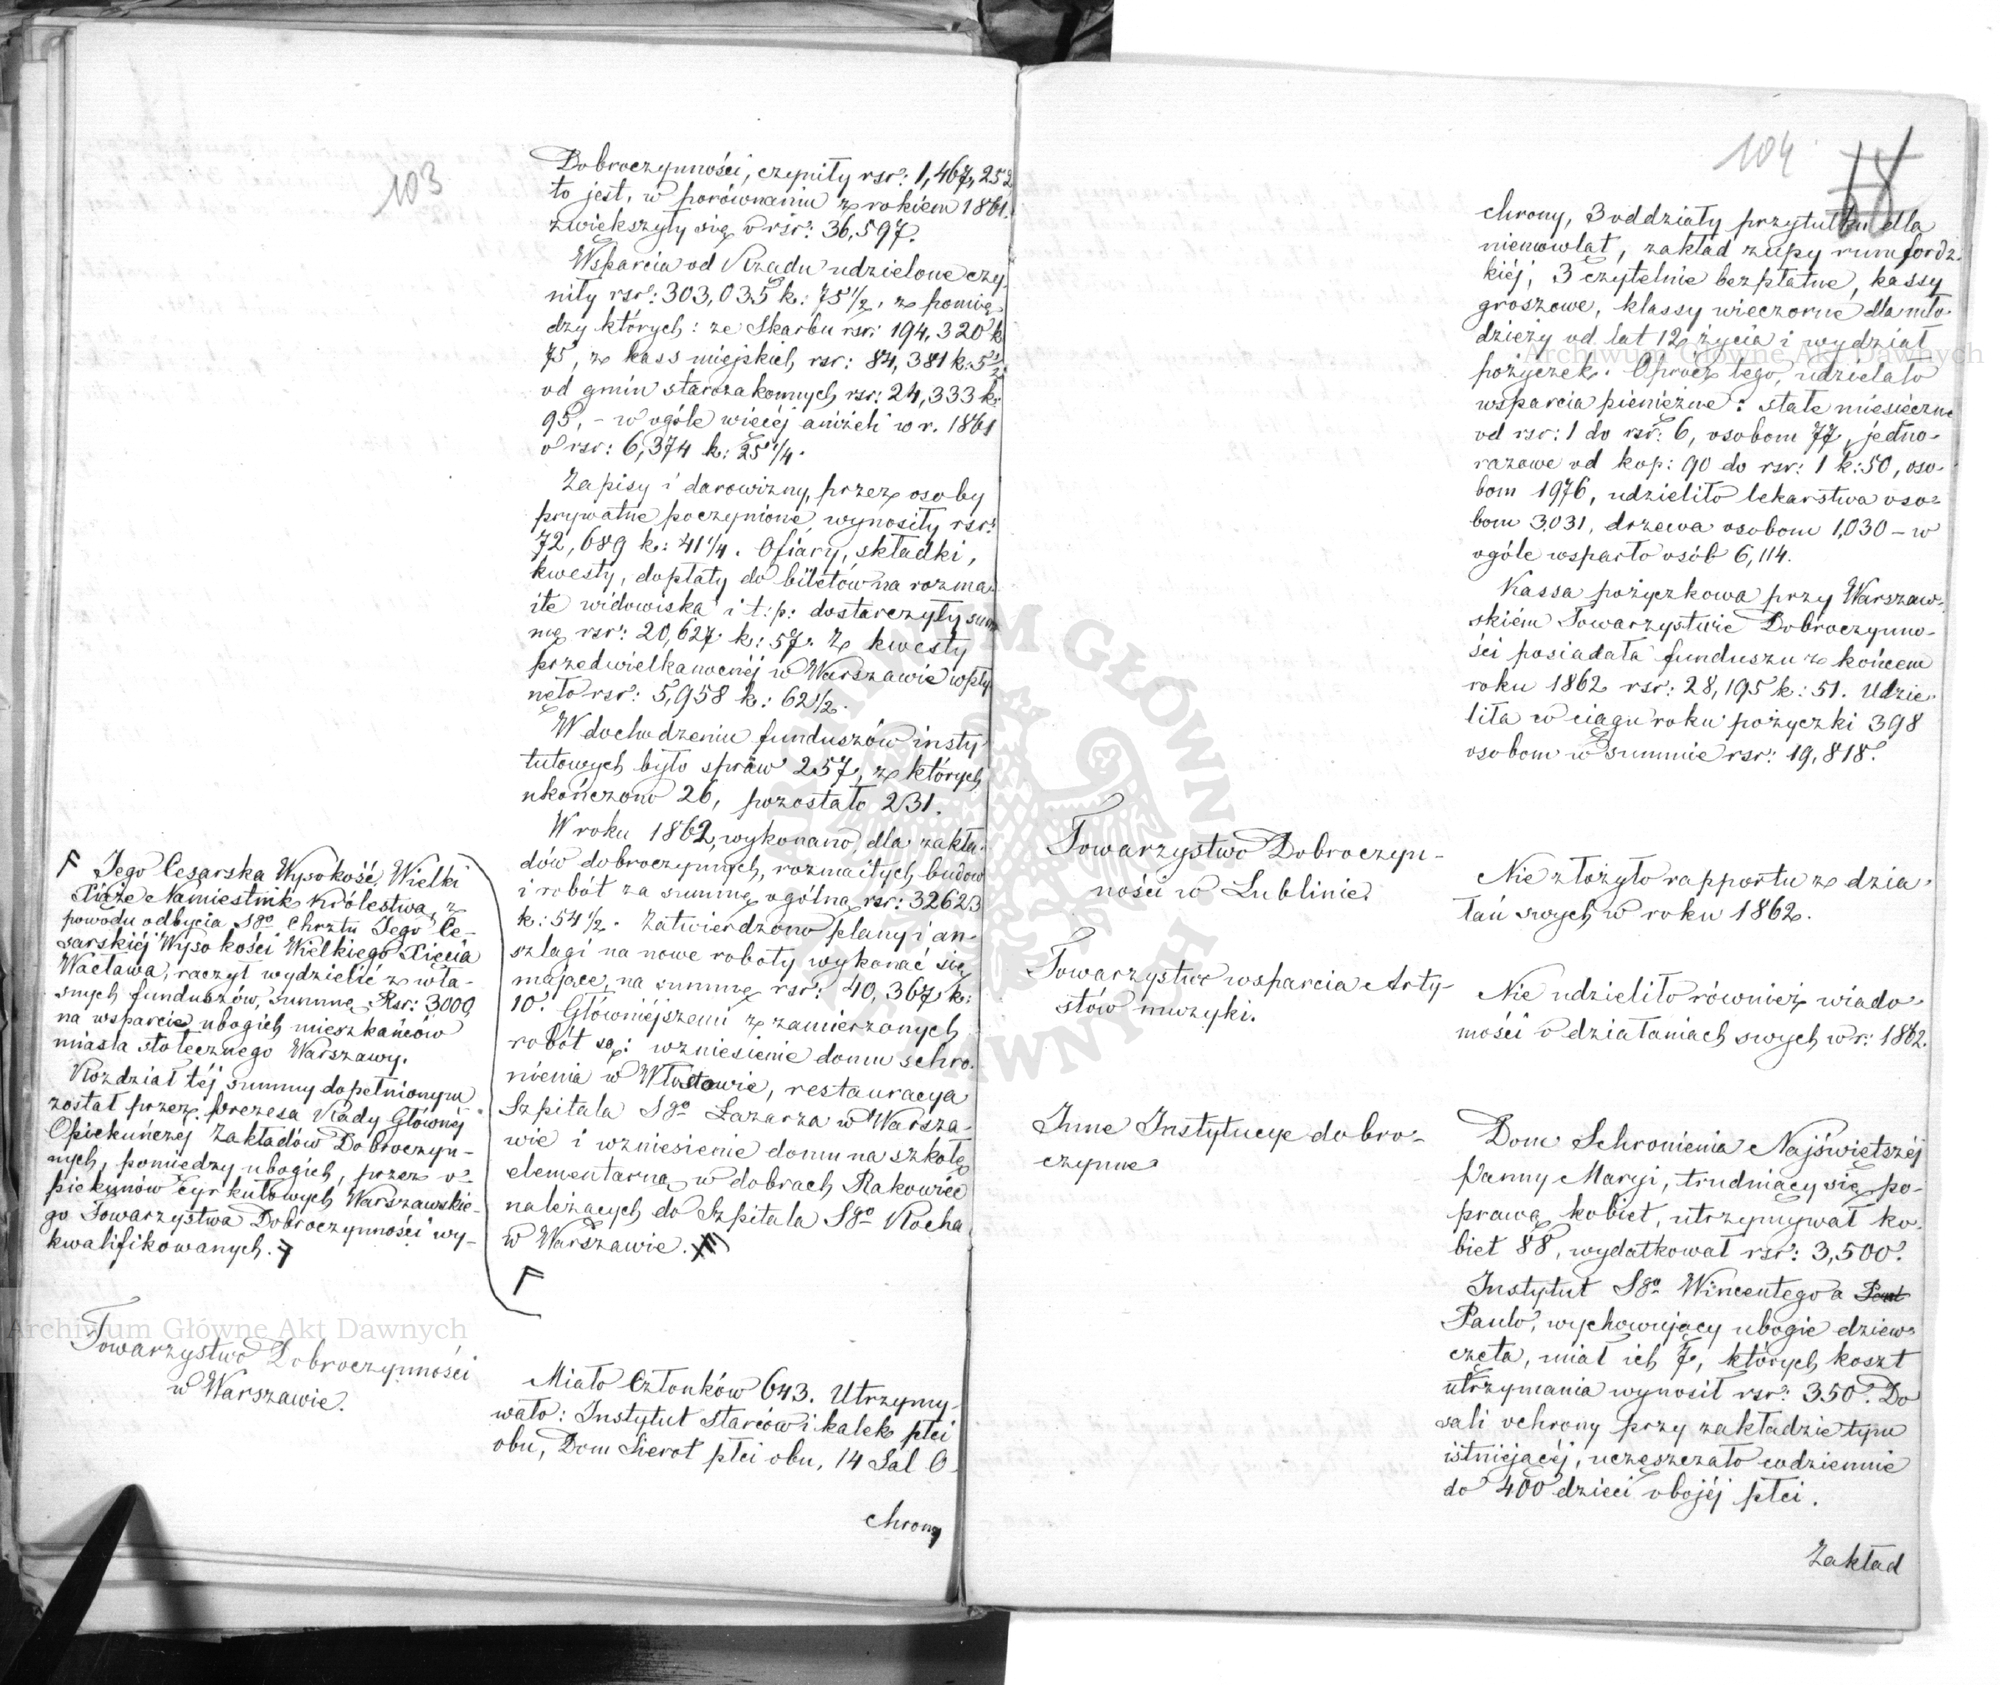 103
Dobroczynności, czyniły rsr: 1,467,252
to jest, w porównaniu z rokiem 1861.
zwiększyły się o rsr: 36,597.
Wsparcia od Rządu udzielone czy-
niły rsr: 303,035 k: 75 1/2, z pomię-
dzy których: ze Skarbu rsr: 194,320 k
75, z kass miejskich, rsr: 84,381 k: 5 1/2
od gmin starozakonnych rsr: 24,333 k:
95, - w ogóle więcéj aniżeli w r. 1861
o rsr: 6,374 k: 25 1/4.
Zapisy i darowizny, przez osoby
prywatne poczynione, wynosiły rsr:
72,689 k: 41 1/4. Ofiary, składki,
kwesty, dopłaty do biletów na rozma-
ite widowiska i t: p: dostarczyły sum-
mę rsr: 20,627 k: 57. Z kwesty
przedwielkanocnéj w Warszawie wpły-
nęło rsr: 5,958 k: 62 1/2.
W dochodzeniu funduszów insty-
tutowych było spraw 257, z których
ukończono 26, pozostało 231.
W roku 1862, wykonano, dla zakła-
dów dobroczynnych, rozmaitych budow
i robót za summę ogólną rsr: 32623
k: 54 1/2. Zatwierdzono plany i an-
szlagi na nowe roboty wykonać się
mające, na summę rsr: 40,367 k:
10. Główniéjszemi z zamierzonych
robót są: wzniesienie domu schro-
nienia w Włostowie, restauracya
Szpitala Sgo Łazarza w Warsza-
wie i wzniesienie domu na szkołę
elementarną w dobrach Rakowiec
należących do Szpitala Sgo Rocha
w Warszawie.
Jego Cesarska Wysokość, Wielki
Xiąże Namiestnik Królestwa, z
powodu odbycia Sgo Chrztu Jego Ce-
sarskiéj Wysokości Wielkiego Xięcia
Wacława, raczył wydzielić z wła-
snych funduszów, summę Rsr: 3000,
na wsparcie ubogich mieszkańców
miasta stołecznego Warszawy.
Rozdział téj summy dopełnionym
został przez Prezesa Rady Głównéj
Opiekuńczéj Zakładów Dobroczyn-
nych, pomiędzy ubogich, przez o-
piekunów Cyrkułowych Warszawskie-
go Towarzystwa Dobroczynności wy-
kwalifikowanych.
Towarzystwo Dobroczynności
w Warszawie.
Miało Członków 643. Utrzymy-
wało: Instytut starców i kalek płci
obu, Dom Sierot płci obu, 14 Sal O-
chrony
104
chrony, 3 oddziały przytułku dla
niemowląt, zakład zupy rumfordz-
kiéj, 3 czytelnie bezpłatne, kassy
groszowe, klassy wieczorne dla mło-
dzieży od lat 12 życia i wydział
pożyczek. Oprócz tego, udzielało
wsparcia pieniężne: stałe miesięczne
od rsr: 1 do rsr: 6, osobom 77, jedno-
razowe od kop: 90 do rsr: 1 k: 50, oso-
bom 1976, udzieliło lekarstwa oso-
bom 3031, drzewa osobom 1,030 - w
ogóle wsparło osób 6,114.
Kassa pożyczkowa przy Warszaw-
skiém Towarzystwie Dobroczynno-
ści posiadała funduszu z końcem
roku 1862 rsr: 28,195 k: 51. Udzie-
liła w ciągu roku pożyczki 398
osobom w summie rsr: 19,818.
Towarzystwo Dobroczyn-
ności w Lublinie.
Nie złożyło rapportu z dzia-
łań swych w roku 1862.
Towarzystwo wsparcia Arty-
stów muzyki.
Nie udzieliło również wiado-
mości o działaniach swych w r: 1862.
Inne Instytucye dobro-
czynne
Dom Schronienia Najświętszéj
Panny Maryi, trudniący się po-
prawą kobiet, utrzymywał ko-
biet 88, wydatkował rsr: 3,500.
Instytut Sgo Wincentego a
Paulo, wychowujący ubogie dziew-
częta, miał ich 7, których koszt
utrzymania wynosił rsr: 350. Do
sali ochrony przy zakładzie tym
istniejącéj, uczęszczało codziennie
do 400 dzieci obojéj płci.
Zakład
Archiwum Główne Akt Dawnych
Archiwum Główne Akt Dawnych
ARCHIWUM GŁÓWNE AKT DAWNYCH